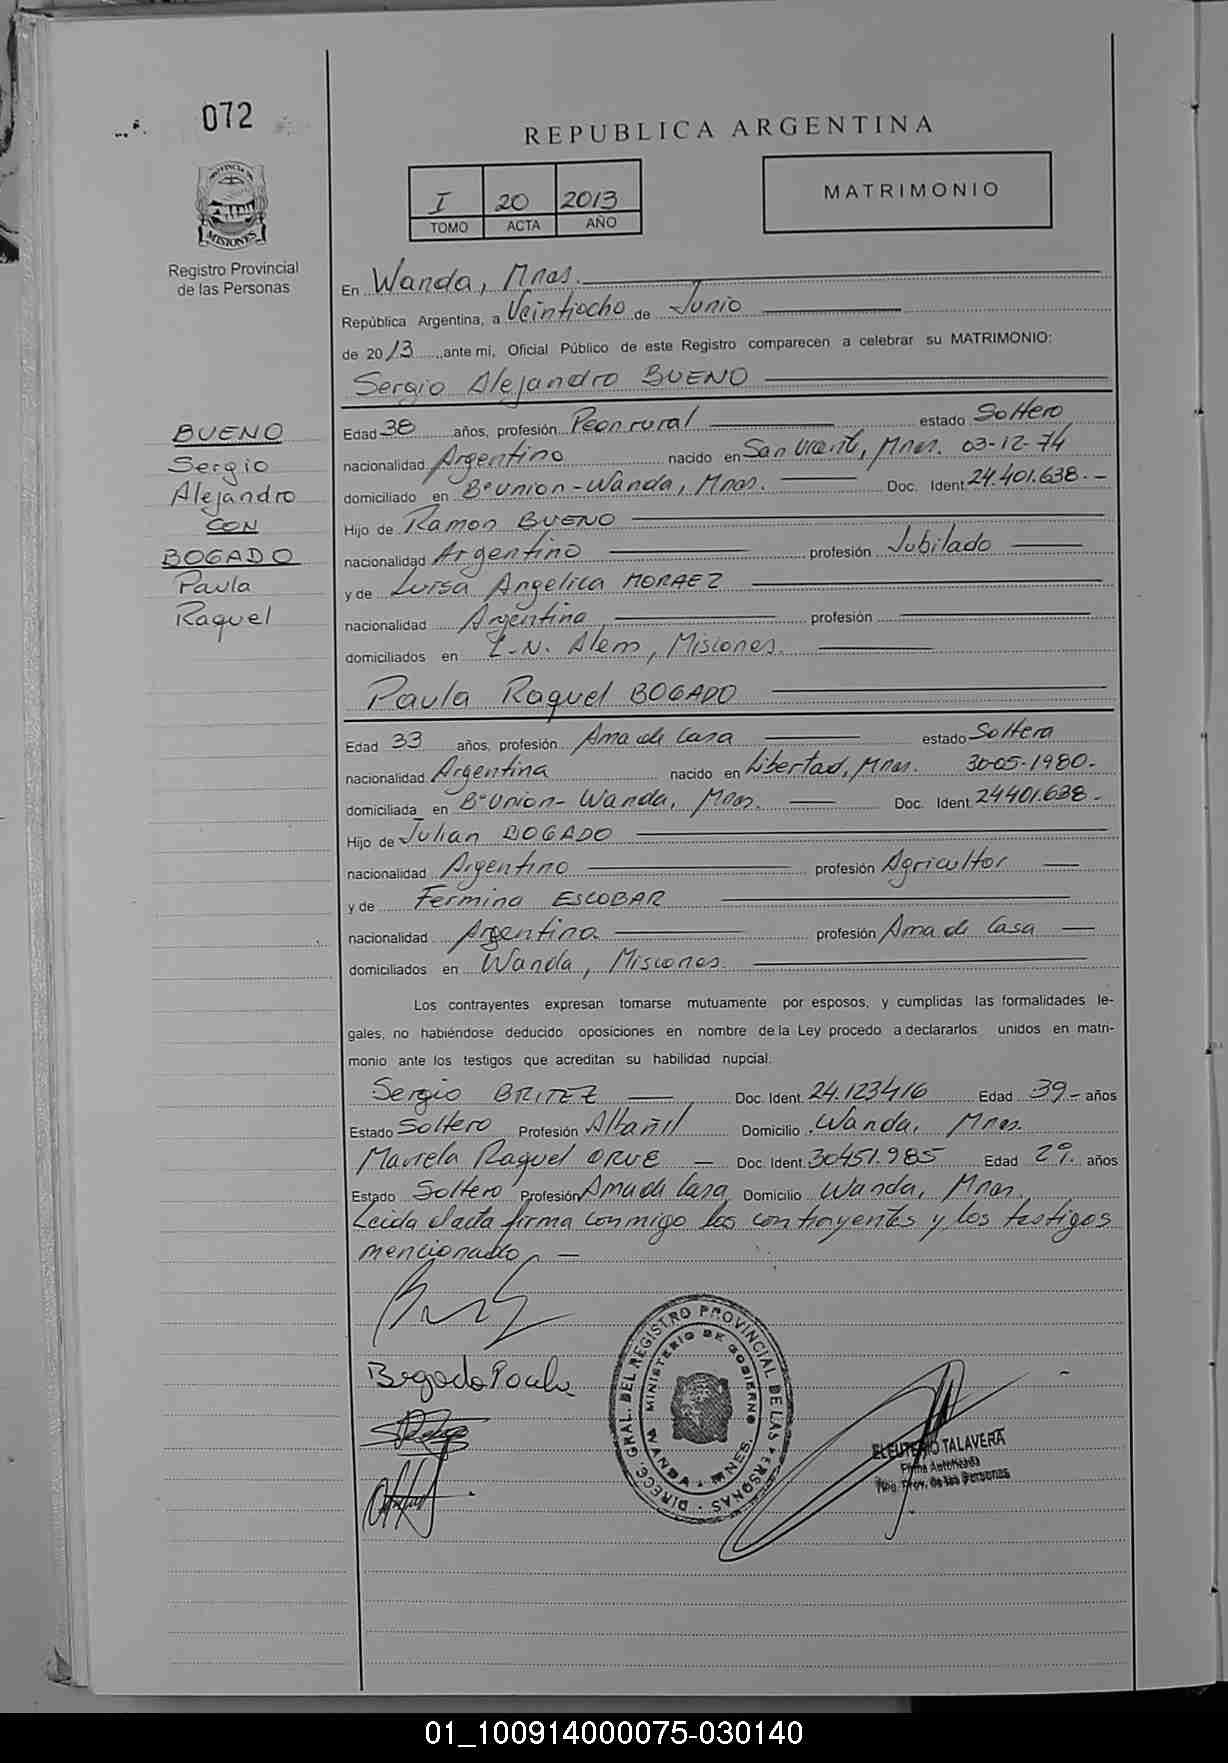 072
REPUBLICA ARGENTINA
I 20 2013
TOMO ACTA AÑO
MATRIMONIO
PROVINCIA DE
MISIONES
Registro Provincial
de las Personas
En Wanda, Mnes.
República Argentina, a Veintiocho de Junio
de 2013 ante mi, Oficial Público de este Registro comparecen a celebrar su MATRIMONIO:
Sergio Alejandro BUENO
BUENO
Sergio
Alejandro
CON
BOGADO
Paula
Raquel
Edad 38 años, profesión Peon rural estado Soltero
nacionalidad Argentino nacido en San Vicente, Mnes. 03-12-74
domiciliado en B° Union - Wanda, Mnes. Doc. Ident. 24.401.638.-
Hijo de Ramon BUENO
nacionalidad Argentino profesión Jubilado
y de Luisa Angelica MORAEZ
nacionalidad Argentina, profesión
domiciliados en L.N. Alem, Misiones.
Paula Raquel BOGADO
Edad 33 años, profesión Ama de Casa estado Soltera
nacionalidad Argentina nacido en Libertad, Mnes. 30-05-1980.
domiciliada en B° Union - Wanda, Mnes. Doc. Ident. 24401.638-
Hijo de Julian BOGADO
nacionalidad Argentino profesión Agricultor
y de Fermina ESCOBAR
nacionalidad Argentina profesión Ama de Casa
domiciliados en Wanda, Misiones.
Los contrayentes expresan tomarse mutuamente por esposos, y cumplidas las formalidades le-
gales, no habiéndose deducido oposiciones en nombre de la Ley procedo a declararlos unidos en matri-
monio ante los testigos que acreditan su habilidad nupcial.
Sergio BRITEZ Doc. Ident. 24.123416 Edad 39.- años
Estado Soltero Profesión Albañil Domicilio Wanda, Mnes.
Mariela Raquel ORUE - Doc. Ident. 30451.985 Edad 29. años
Estado Soltero Profesión Ama de Casa Domicilio Wanda, Mnes.
Leida el acta firma conmigo los contrayentes y los testigos
mencionado. -
Bogado Paula
DIRECC. GRAL. DEL REGISTRO PROVINCIAL DE LAS PERSONAS
MINISTERIO DE GOBIERNO
WANDA - MNES.
ELEUTERIO TALAVERA
Firma Autorizada
Prov. de las Personas
01_100914000075-030140